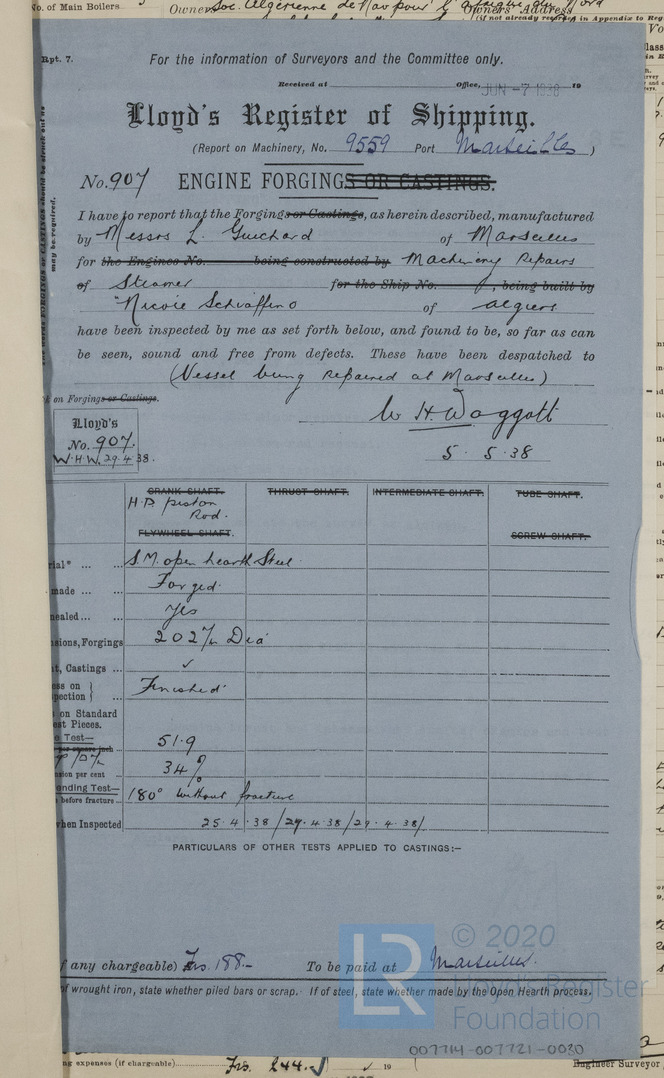 No. of Main Boilers
Owners Soc. Algérienne de Nav pour l'Afrique du Nord
Owners' Address
(if not already recorded in Appendix to Reg
Rpt. 7.
For the information of Surveyors and the Committee only.
Received at Office, JUN -7 1938 19
Lloyd's Register of Shipping.
(Report on Machinery, No. 9559 Port Marseilles)
No. 907 ENGINE FORGINGS OR CASTINGS.
I have to report that the Forgings or Castings, as herein described, manufactured
by Messrs L. Guichard of Marseilles
for the Engines No. being constructed by Machinery Repairs
of Steamer for the Ship No. , being built by
"Nicole Schiaffino of Algiers
have been inspected by me as set forth below, and found to be, so far as can
be seen, sound and free from defects. These have been despatched to
(Vessel being repaired at Marseilles)
k on Forgings or Castings.
W H Waggott
Lloyd's
No. 907.
W.H.W. 29.4.38.
5.5.38
CRANK SHAFT. THRUST SHAFT. INTERMEDIATE SHAFT. TUBE SHAFT.
H.P. piston
Rod.
FLYWHEEL SHAFT. SCREW SHAFT.
rial* ... ... S.M. open hearth Steel
made ... ... Forged.
nealed ... ... Yes
sions, Forgings 202 m/m Dia
t, Castings ... ✓
ess on
pection Finished
on Standard
est Pieces.
e Test—
per square inch 51.9
sion per cent 34%
ending Test—
before fracture 180° without fracture
when Inspected 25.4.38/27.4.38/29.4.38/
PARTICULARS OF OTHER TESTS APPLIED TO CASTINGS:—
© 2020
f any chargeable) Frs. 188.- To be paid at Marseilles.
LR Lloyd's Register
Foundation
of wrought iron, state whether piled bars or scrap. If of steel, state whether made by the Open Hearth process.
007714-007721-0030
ng expenses (if chargeable) Frs. 244. ✓ 19
Engineer Surveyor